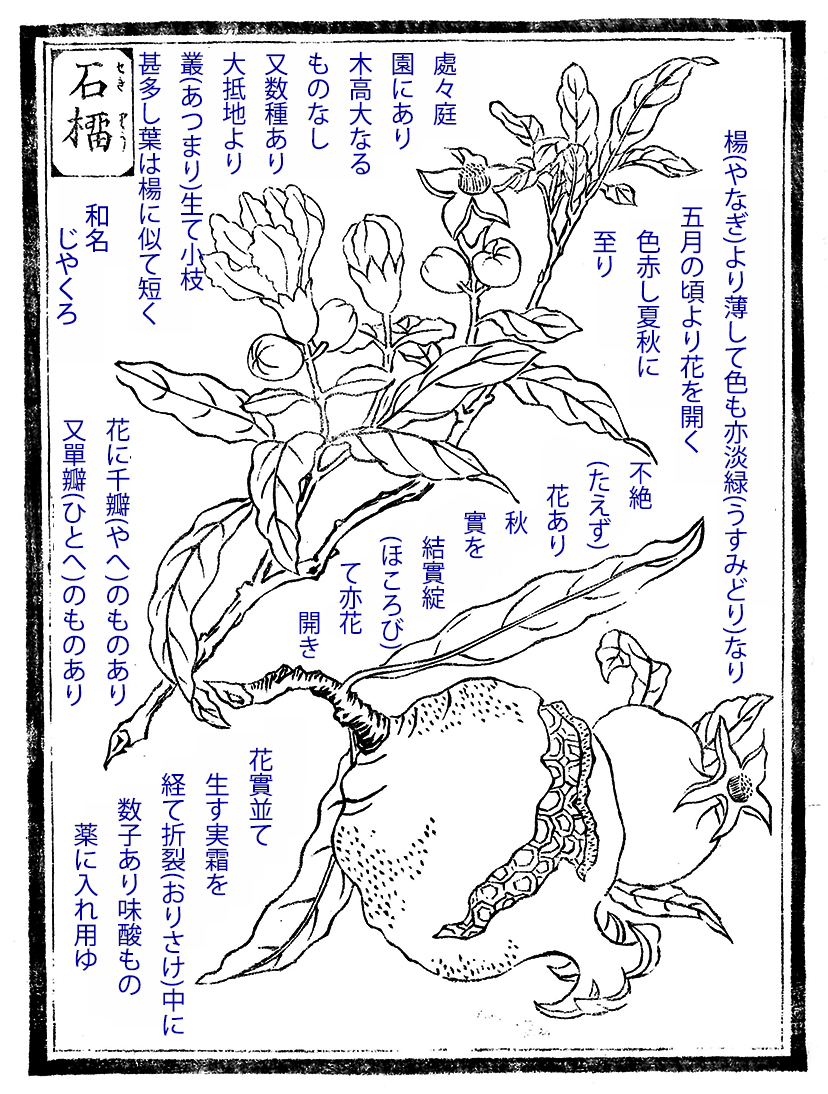 石橊
せき
和名
じやくろ
處々庭
園にあり
木高大なる
ものなし
又数種あり
大抵地より
叢(あつまり)生て小枝
甚多し葉は楊に似て短く
楊(やなぎ)より薄して色も亦淡緑(うすみどり)なり
五月の頃より花を開く
色赤し夏秋に
至り
不絶
(たえず)
花あり
秋
實を
結實綻
(ほころび)
て亦花
開き
花實並て
生す実霜を
経て折裂(おりさけ)中に
数子あり味酸もの
薬に入れ用ゆ
花に千瓣(やへ)のものあり
又單瓣(ひとへ)のものあり